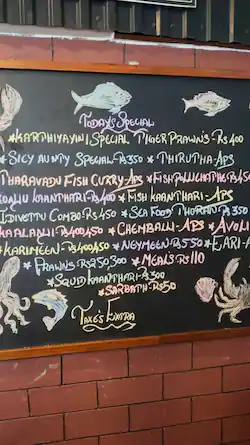 Today's Special
*Karthiyayini Special Tiger Prawns-Rs400
*Sicy Aunty Special-Rs350 *Thirutha-APS
Tharavadu Fish Curry-APS *Fish Pallichathe-Rs450
Kaanthari-Rs400 *Fish Kaanthari-APS
Idivettu Combo-Rs450 *Sea Food Thoran-Rs350
Kaalanji-Rs400,450 *Chemballi-APS *Avoli
*Karimeen-Rs400,450 *Neymeen-Rs550
*Prawns-Rs250,300 *Meals-Rs110
*Squid Kaanthari-Rs300
*Sarbath-Rs50
Taxe's Extra